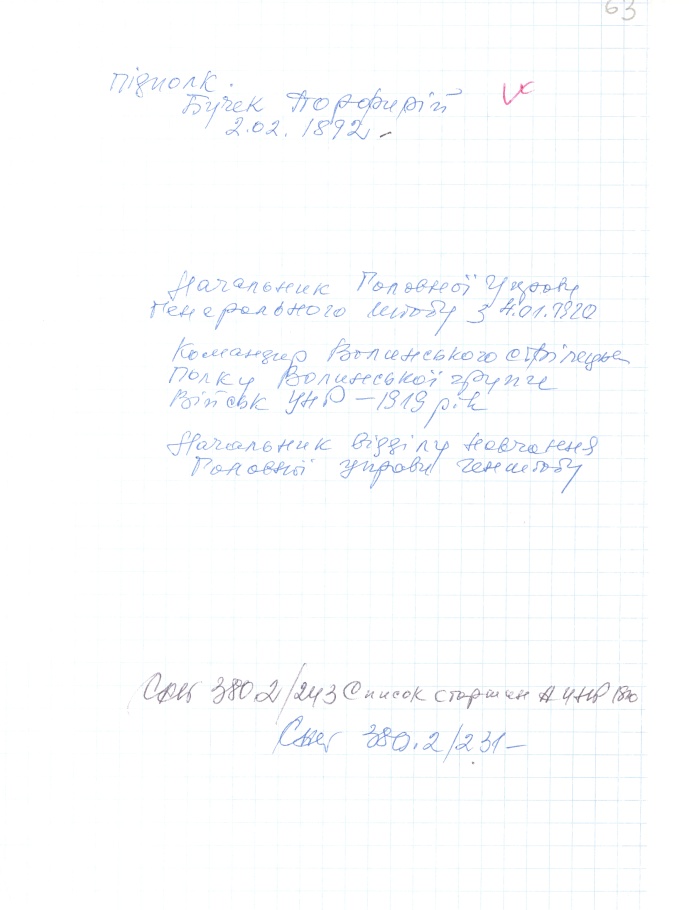 63
Підполк.
Бучек Порфирій
2.02.1892
Начальник Головної Управи
Генерального штабу з 4.01.1920
Командир Волинського стрілецьк
Полку Волинської групи
Військ УНР – 1919 рік
Начальник відділу навчання
Головної управи генштабу
380.2/243 Список старшин А УНР 1920
380.2/231–